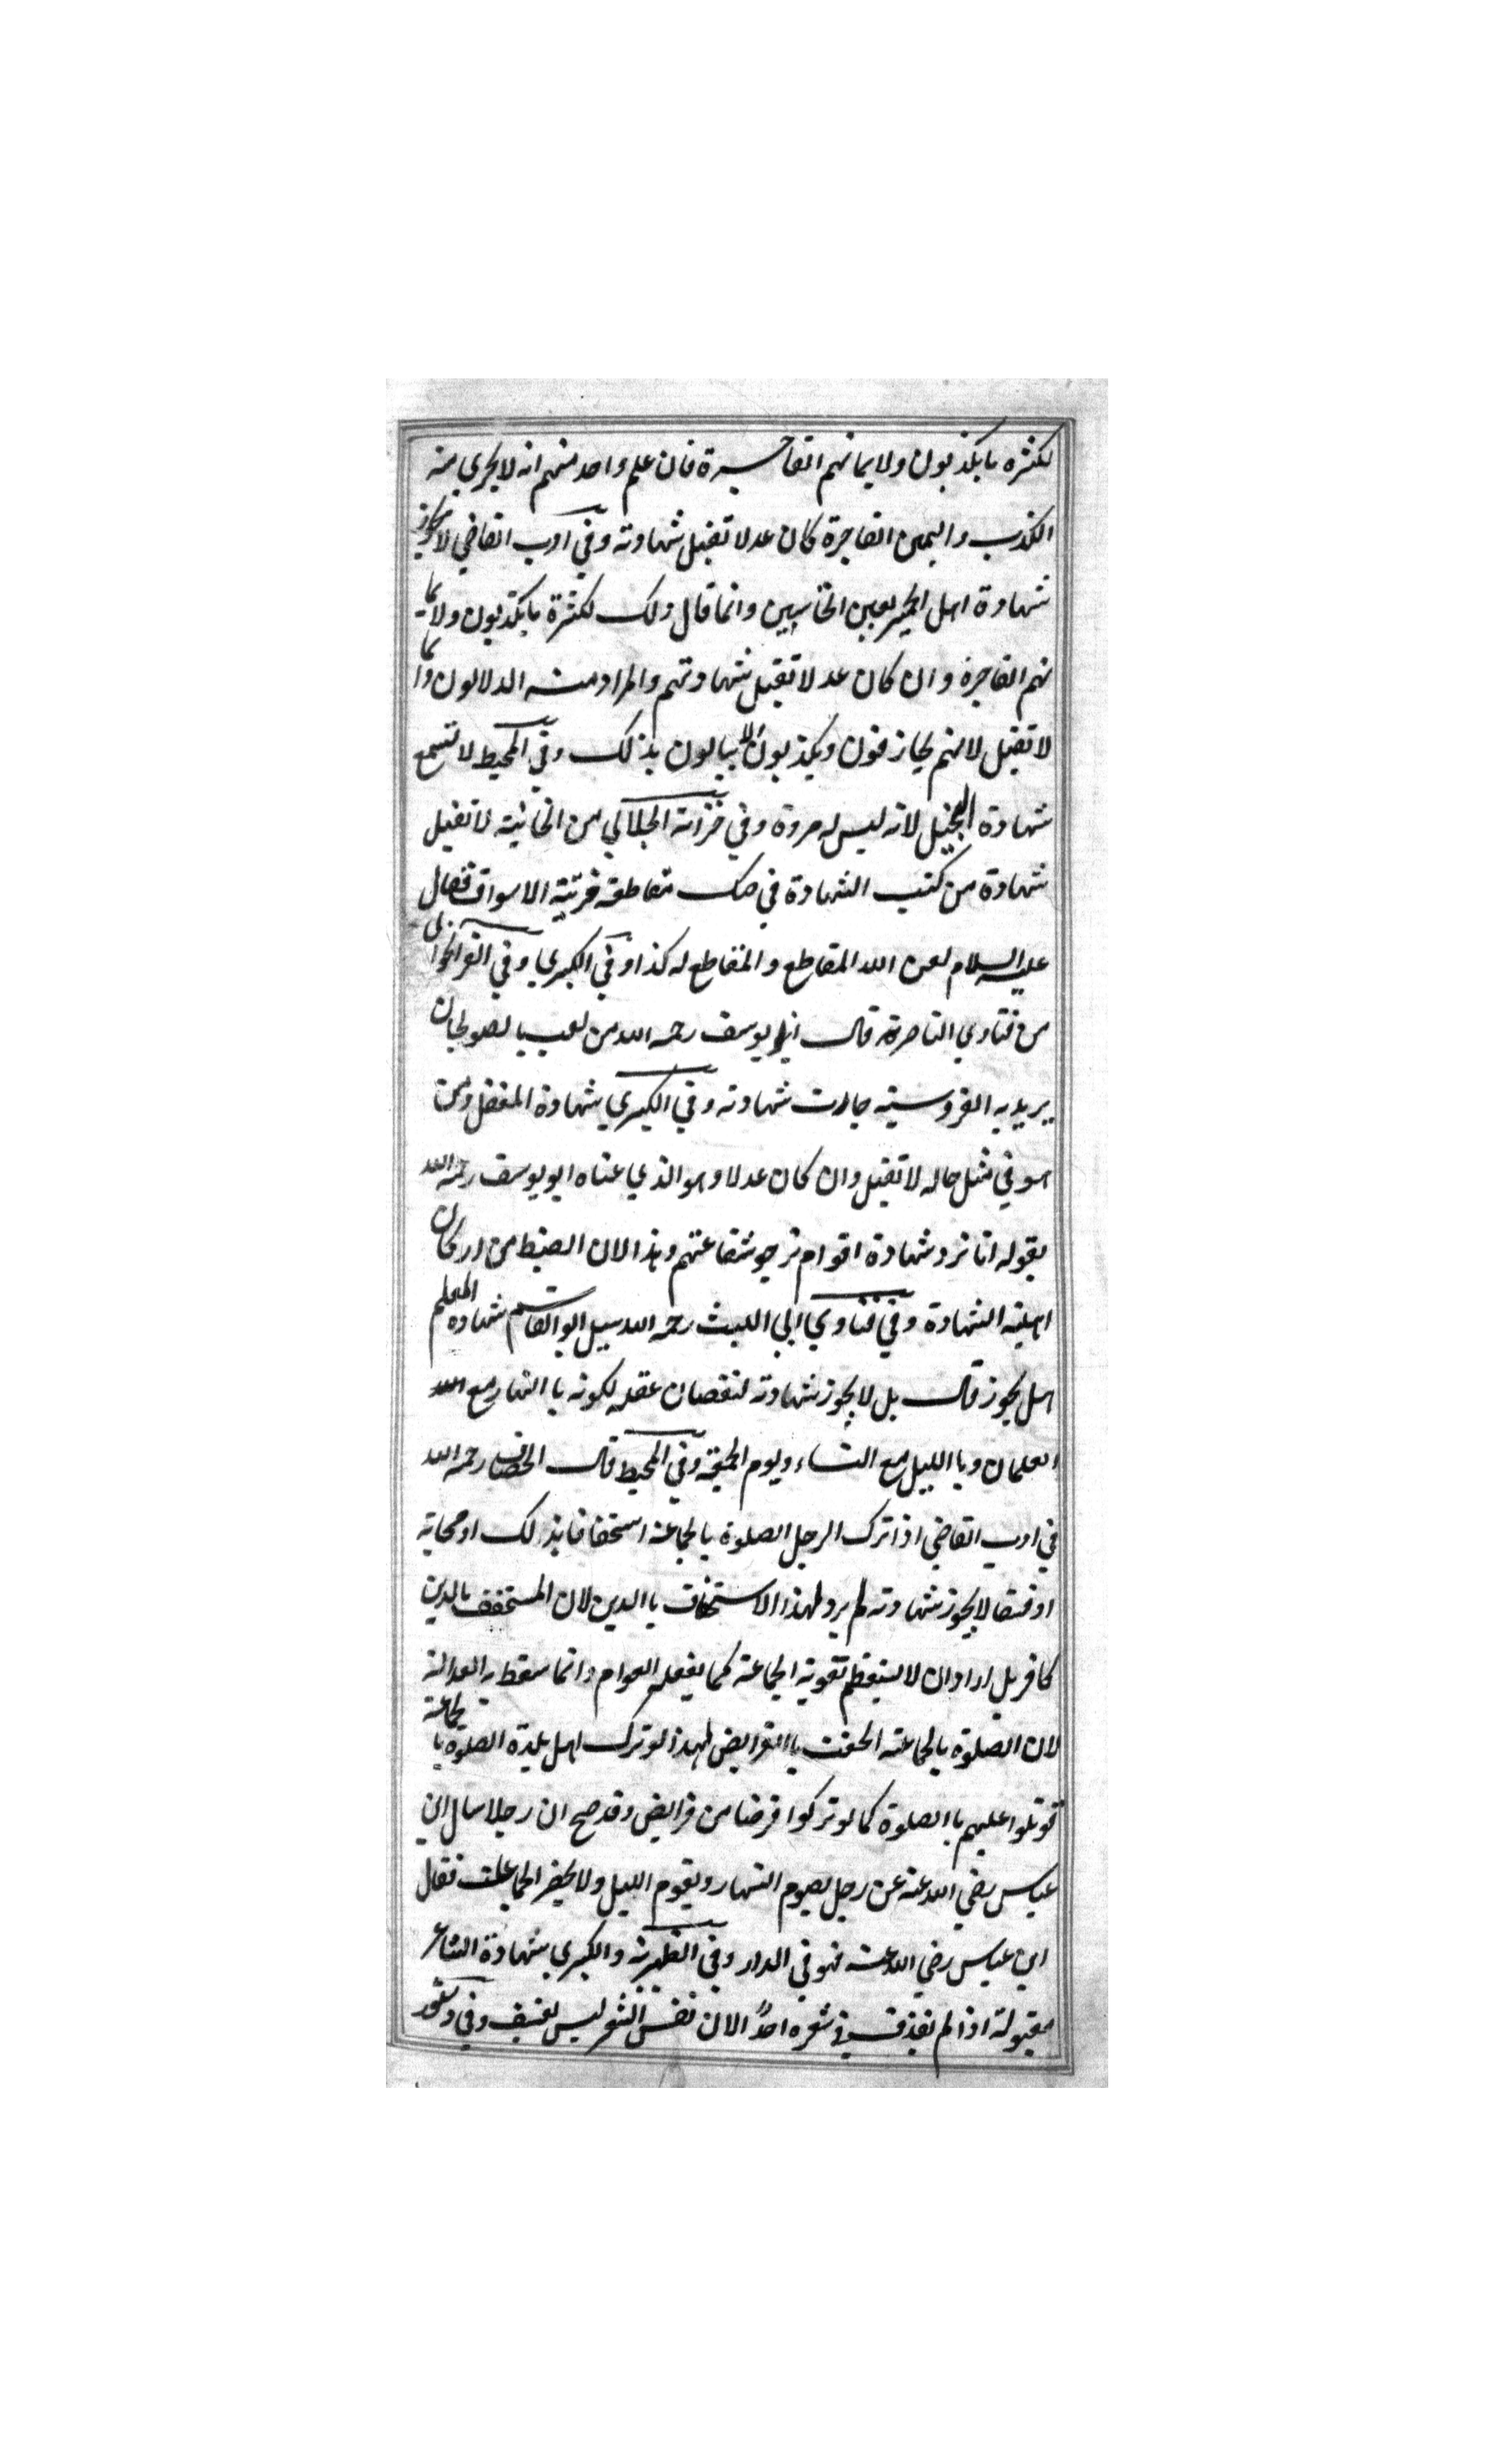 لكثره ما يكذبون ولايمانهم الفاجرة فان علم واحد منهم انه لا يجري منه
الكذب واليمين الفاجرة كان عدلا تقبل شهادته وفي ادب القاضي لا يجوز
شهادة اهل الحمير بعين النخاسين وانما قال ذلك لكثرة ما يكذبون ولايما
نهم الفاجرة وان كان عدلا تقبل شهادتهم والمراد منه الدلالون وانما
لا تقبل لانهم يجازفون ويكذبون لا يبالون بذلك وفي المحيط لا تسمع
شهادة البخيل لانه ليس له مروة وفي خزانة الجلالي من الخانية لا تقبل
شهادة من كتب الشهادة في صك مقاطعه الاسواق فقال
عليه السلام لعن الله المقاطع والمقاطع له كذا في الكبرى وفي
من فتاوي الناصرية قال ابو يوسف رحمه الله من لعب بالصولجان
يريد به الفروسية جازت شهادته وفي الكبرى شهادة المغفل ومن
هو في مثل حاله لا تقبل وان كان عدلا وهو الذي عناه ابو يوسف رحمه الله
بقوله انا نرد شهادة اقوام نرجو شفاعتهم وهذا لان الضبط من اركان
اهلية الشهادة وفي فتاوي ابي الليث رحمه الله سيل ابو القاسم شهادة المعلم
هل يجوز قال بل لا يجوز شهادته لنقصان عقله لكونه باالنهار مع
الغلمان وباالليل مع النساء ويوم الجمعة وفي المحيط قال الخصاف رحمه الله
في ادب القاضي اذا ترك الرجل الصلوة بالجماعة استخفافا بذلك او مجانة
او فسقا لا يجوز شهادته لم يرد لهذا الاستخفاف باالدين لان المستخفف بالدين
كافر بل اراد ان لا يستعظم تفوية الجماعة كما يفعله العوام وانما سقط به العدالة
لان الصلوة بالجماعة الحقت باالفرايض لهذا لو ترك اهل بلدة الصلوة بالجماعة
قوتلوا عليهم باالصلوة كما لو تركوا فرضا من فرايض وقد صح ان رجلا سال ابن
عباس رضي الله عنه عن رجل يصوم النهار ويقوم الليل ولا يحضر الجماعات فقال
ابن عباس رضي الله عنه فهو في النار وفي الظهيرية والكبرى شهادة الشاعر
مقبولة اذا لم يقذف في شعره احدا لان نفس الشعر ليس بفسق وفي دستور